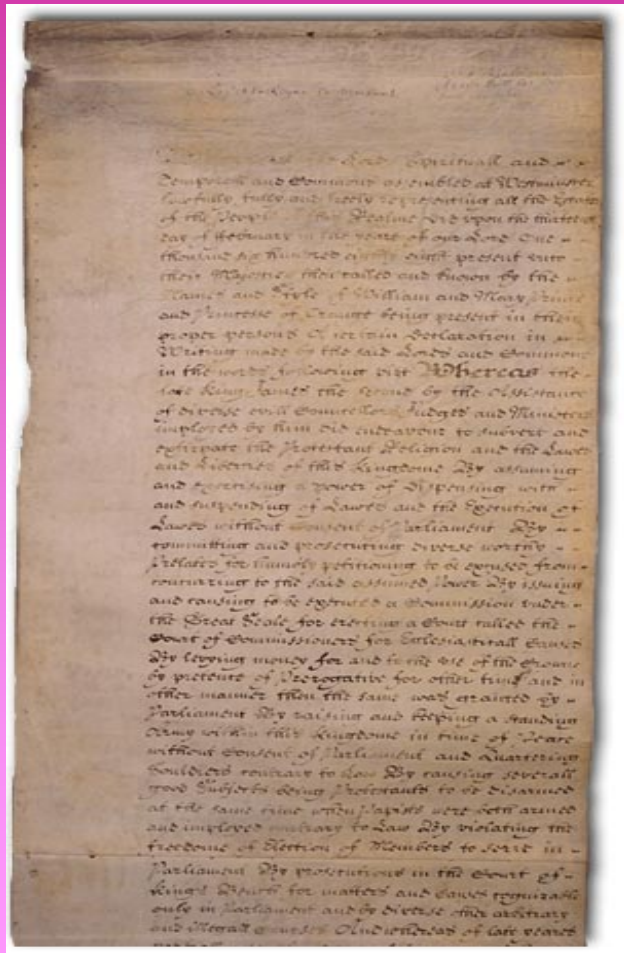 the Lords Spirituall and
Temporall and Commons assembled at Westminster
lawfully fully and freely representing all the Estates
of the People of this Realme did upon the thirteenth
day of February in the yeare of our Lord One
thousand six hundred eighty eight present unto
their Majesties then called and known by the
Names and Stile of William and Mary Prince
and Princesse of Orange being present in their
proper persons A certain Declaration in
Writing made by the said Lords and Commons
in the words following vizt Whereas the
late King James the second by the Assistance
of diverse evill Councellors Judges and Ministers
imployed by him did endeavour to subvert and
extirpate the Protestant Religion and the Lawes
and Liberties of this Kingdome By assuming
and exercising a power of dispensing with
and suspending of Lawes and the Execution of
Lawes without Consent of Parliament By
committing and prosecuting diverse worthy
Prelates for humbly petitioning to be excused from
concurring to the said assumed Power By issuing
and causing to be executed a Commission under
the Great Seale for erecting a Court called the
Court of Commissioners for Ecclesiasticall Causes
By levying money for and to the use of the Crowne
by pretence of Prerogative for other time and in
other manner then the same was granted by
Parliament By raising and keeping a standing
Army within this Kingdome in time of Peace
without Consent of Parliament and Quartering
Souldiers contrary to Law By causing severall
good Subjects being Protestants to be disarmed
at the same time when Papists were both armed
and imployed contrary to Law By violating the
freedome of Election of Members to serve in
Parliament By prosecutions in the Court of
Kings Bench for matters and Causes cognizable
only in Parliament and by diverse other arbitrary
and illegall Courses And whereas of late yeares